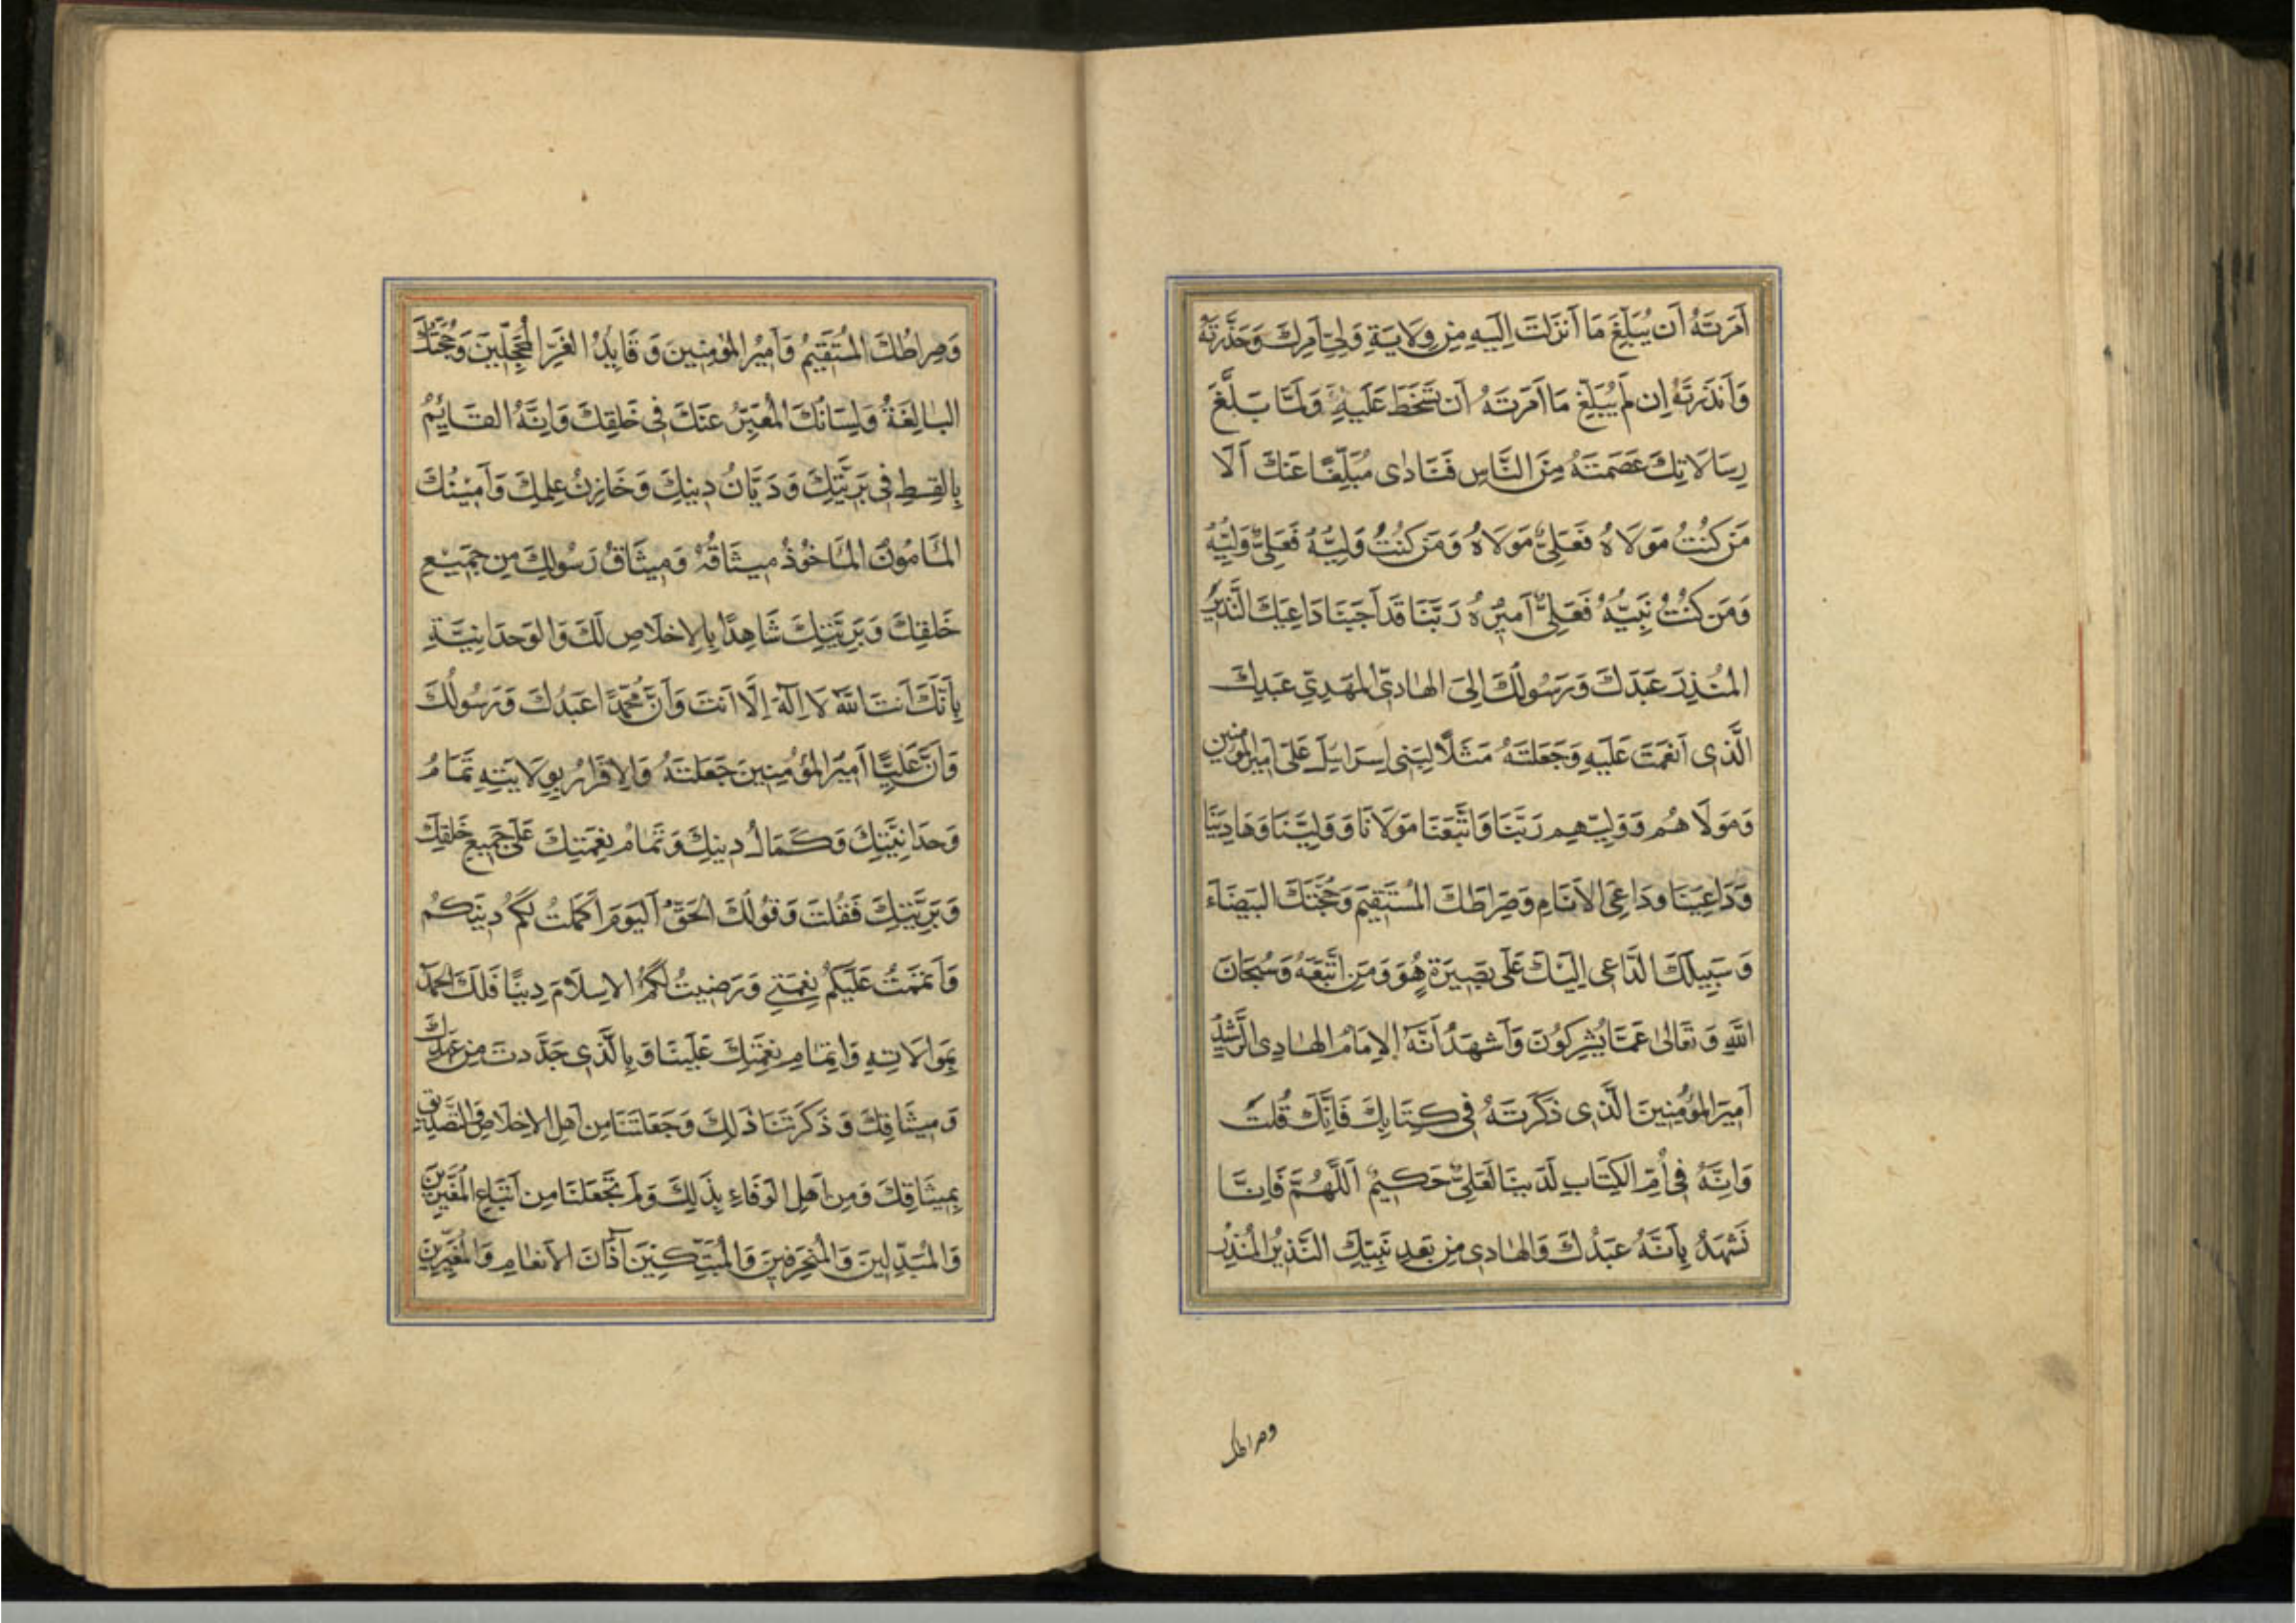 اَمَرتَهُ اَن يُبَلِّغَ مَا اَنزَلتَ اِلَيهِ مِن وِلَايَةِ وَلِيِّ اَمرِكَ وَحَذَّرتَهُ
وَاَنذَرتَهُ اِن لَم يُبَلِّغ مَا اَمَرتَهُ اَن تَسخَطَ عَلَيهِ وَلَمَّا بَلَّغَ
رِسَالَاتِكَ عَصَمتَهُ مِنَ النَّاسِ فَنَادٰى مُبَلِّغًا عَنكَ اَلَا
مَن كُنتُ مَولَاهُ فَعَلِيٌّ مَولَاهُ وَمَن كُنتُ وَلِيَّهُ فَعَلِيٌّ وَلِيُّهُ
وَمَن كُنتُ نَبِيُّهُ فَعَلِيٌّ اَمِيرُهُ رَبَّنَا قَد اَجَبنَا دَاعِيَكَ النَّذِيرُ
المُنذِرَ عَبدَكَ وَرَسُولَكَ اِلَى الهَادِيِّ المَهدِيِّ عَبدِكَ
الَّذِى اَنعَمتَ عَلَيهِ وَجَعَلتَهُ مَثَلًا لِبَنِى اِسرَايِيلَ عَلِىّ اَمِيرِالمُؤمِنِين
وَمَولَاهُم وَوَلِيِّهِم رَبَّنَا وَاتَّبَعنَا مَولَانَا وَوَلِيَّنَا وَهَادِيَنَا
وَدَاعِيَنَا وَدَاعِىَ الاَنَامِ وَصِرَاطَكَ المُستَقِيمَ وَحُجَّتَكَ البَيضَاءَ
وَسَبِيلَكَ الدَّاعِى اِلَيكَ عَلَى بَصِيرَةٍ هُوَ وَمَنِ اتَّبَعَهُ وَسُبحَانَ
اللهِ وَتَعَالٰى عَمَّا يُشرِكُونَ وَاَشهَدُ اَنَّهُ الاِمَامُ الهَادِى الرَّشِيدُ
اَمِيرَ المُؤمِنِينَ الَّذِى ذَكَرتَهُ فِى كِتَابِكَ فَاِنَّكَ قُلتَ
وَاِنَّهُ فِى اُمِّ الكِتَابِ لَدَينَا لَعَلِيٌّ حَكِيمٌ اَللّٰهُمَّ فَاِنَّا
نَشهَدُ بِاَنَّهُ عَبدُكَ وَالهَادِى مِن بَعدِ نَبِيِّكَ النَّذِيرُ المُنذِرُ
وصراطك
وَصِرَاطُكَ المُستَقِيمُ وَاَمِيرُ المُؤمِنِينَ وَقَايِدُ الغُرِّ المُحَجَّلِينَ وَحُجَّتُكَ
البَالِغَةُ وَلِسَانُكَ المُعَبِّرُ عَنكَ فِى خَلقِكَ وَاِنَّهُ القَايِمُ
بِالقِسطِ فِى بَرِيَّتِكَ وَدَيَّانُ دِينِكَ وَخَازِنُ عِلمِكَ وَاَمِينُكَ
المَامُونُ المَاخُوذُ مِيثَاقُهُ وَمِيثَاقُ رَسُولِكَ مِن جَمِيعِ
خَلقِكَ وَبَرِيَّتِكَ شَاهِدًا بِالاِخلَاصِ لَكَ وَالوَحدَانِيَّةِ
بِاَنَّكَ اَنتَ اللهُ لَا اِلٰهَ اِلَّا اَنتَ وَاَنَّ مُحَمَّدًا عَبدُكَ وَرَسُولُكَ
وَاَنَّ عَلِيًّا اَمِيرُ المُؤمِنِينَ جَعَلتَهُ وَالاِقرَارُ بِوِلَايَتِهِ تَمَامُ
وَحدَانِيَّتِكَ وَكَمَالُ دِينِكَ وَتَمَامُ نِعمَتِكَ عَلَى جَمِيعِ خَلقِكَ
وَبَرِيَّتِكَ فَقُلتَ وَقَولُكَ الحَقُّ اَليَومَ اَكمَلتُ لَكُم دِينَكُم
وَاَتمَمتُ عَلَيكُم نِعمَتِى وَرَضِيتُ لَكُمُ الاِسلَامَ دِينًا فَلَكَ الحَمدُ
بِمُوَالَاتِهِ وَاِتمَامِ نِعمَتِكَ عَلَينَا وَبِالَّذِى جَدَّدتَ مِن عَهدِكَ
وَمِيثَاقِكَ وَذَكَرتَنَا ذٰلِكَ وَجَعَلتَنَا مِن اَهلِ الاِخلَاصِ وَالتَّصدِيقِ
بِمِيثَاقِكَ وَمِن اَهلِ الوَفَاءِ بِذٰلِكَ وَلَم تَجعَلنَا مِن اَتبَاعِ المُغَيِّرِينَ
وَالمُبَدِّلِينَ وَالمُنحَرِفِينَ وَالمُبَتِّكِينَ آذَانَ الاَنعَامِ وَالمُغَيِّرِينَ